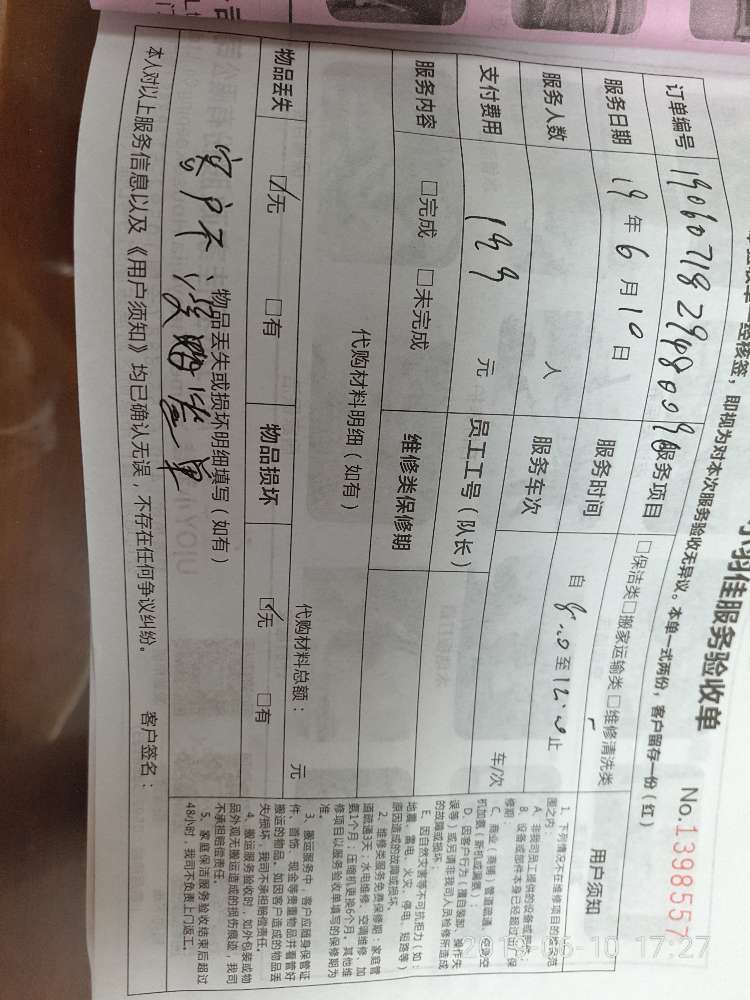 小羽佳服务验收单
No.1398557
经核签，即视为对本次服务验收无异议。本单一式两份，客户留存一份（红）
订单编号 服务项目 □保洁类□搬家运输类 □维修清洗类
服务日期 19 年 6 月 10 日 服务时间 自 8:00 至 12:00 止
服务人数 人 服务车次 车/次
支付费用 元 员工工号（队长）
服务内容 □完成 □未完成 维修类保修期
代购材料明细（如有）
代购材料总额： 元
物品丢失 ☑无 □有 物品损坏 ☑无 □有
物品丢失或损坏明细填写（如有）
客户不
单
本人对以上服务信息以及《用户须知》均已确认无误，不存在任何争议纠纷。 客户签名：
用户须知
1、下列情况不在维修项目的
围之内：
A、非我司员工提供的设备或部件；
B、设备或部件本身已经超过出厂保
修期；
D、因客户行为（擅自装卸、操作失
误等）或另请非我司人员检修所造成
的故障或损坏；
E、因自然灾害等不可抗拒力（如：
地震、雷电、火灾、停电、短路等）
原因造成的故障或损坏。
2、维修类服务免费保修期：家庭管
道疏通3天；水电维修、空调维修、加
氨1个月；压缩机更换6个月。其他维
修项目以服务验收单填写的保修期为
准。
3、搬运服务中，客户应随身保管证
件、首饰、现金等贵重物品并看管好
搬运的物品。如因客户造成的物品丢
失/损坏，我司不承担赔偿责任。
4、搬运服务验收时，如外包装或物
品外观无搬运造成的损伤痕迹，我司
不承担赔偿责任。
5、家庭保洁服务验收结束后超过
48小时，我司不负责上门返工。